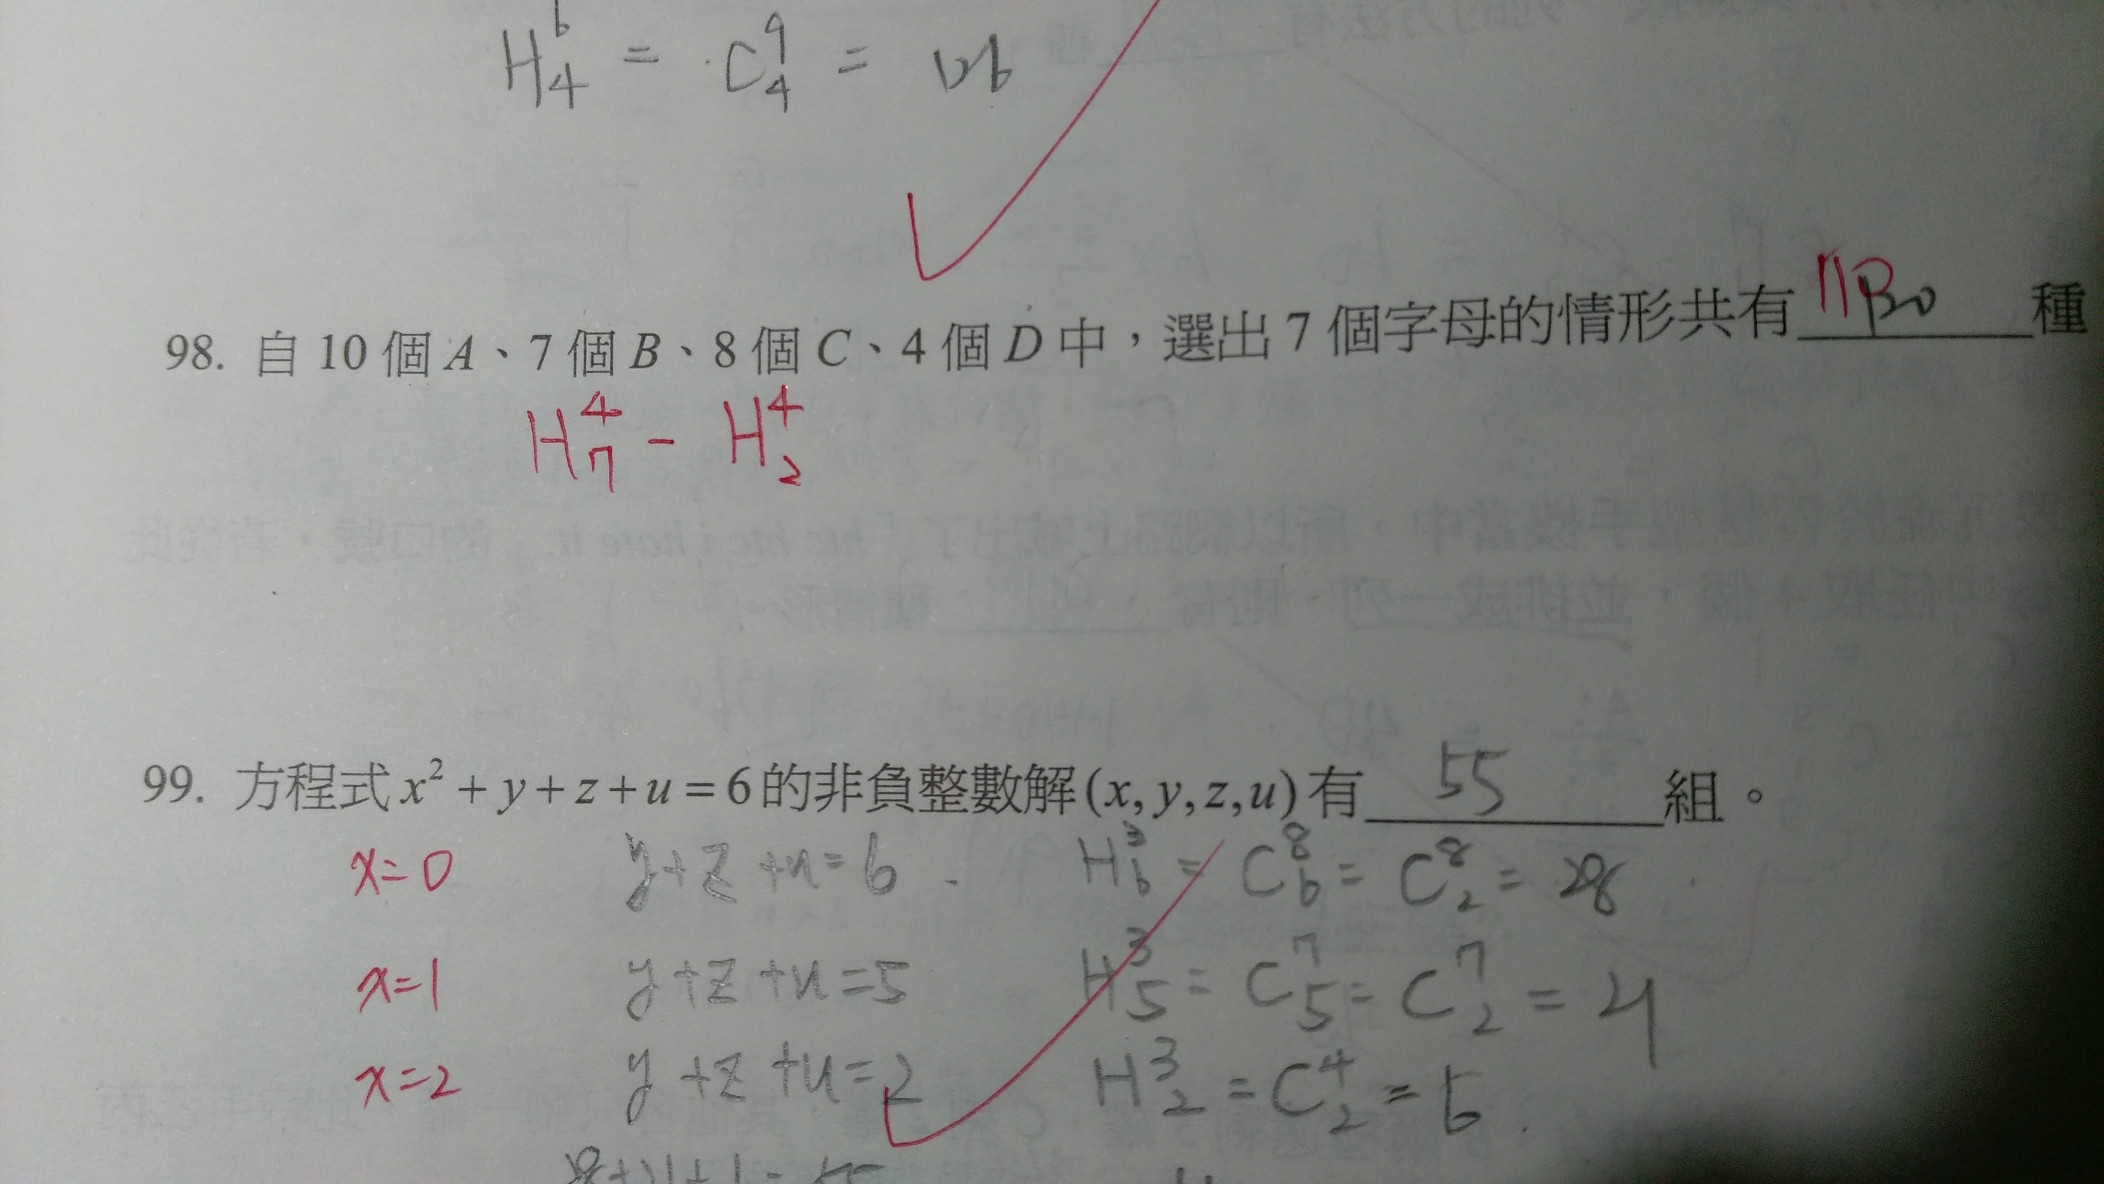 H⁶₄ = C⁹₄ = 126
98. 自 10 個 A、7 個 B、8 個 C、4 個 D 中，選出 7 個字母的情形共有 種
H⁴₇ - H⁴₂
99. 方程式 x² + y + z + u = 6 的非負整數解 (x, y, z, u) 有 55 組。
x=0 y+z+u=6 H³₆ = C⁸₆ = C⁸₂ = 28
x=1 y+z+u=5 H³₅ = C⁷₅ = C⁷₂ = 21
x=2 y+z+u=2 H³₂ = C⁴₂ = 6